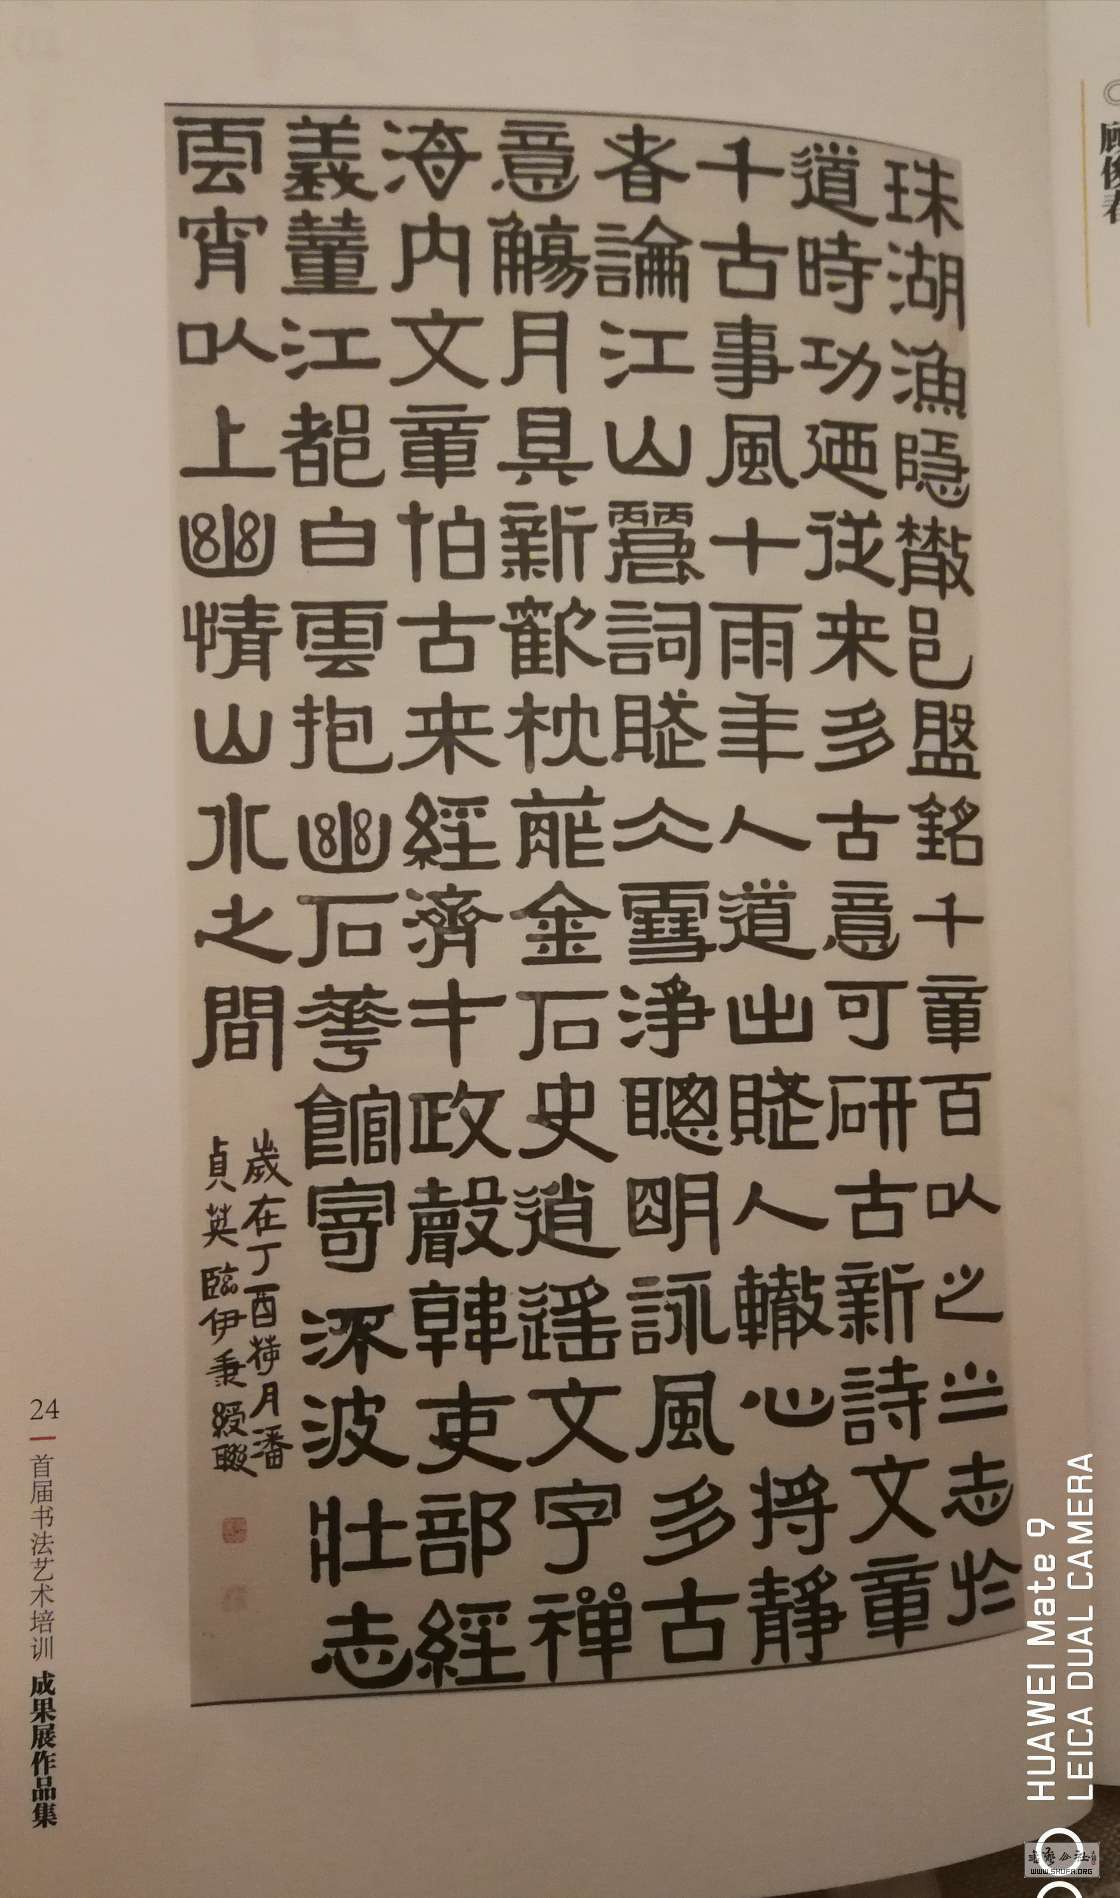 珠湖漁隱散邑盤銘千章百以之志於
道時功迺從来多古意可研古新詩文章
千古事風十雨年人道出賦人轍心將靜
者論江山麗詞賦仌雪淨聰明詠風多古
意觴月具新歡枕葄金石史逍遙文字禪
海内文章怕古来經濟才政聲韓吏部經
義董江都白雲抱幽石華館寄深波壯志
雲宵以上幽情山水之間
歲在丁酉月潘
貞英臨伊秉綬聯
24
首届书法艺术培训 成果展作品集
HUAWEI Mate 9
LEICA DUAL CAMERA
WWW.SHUFA.ORG